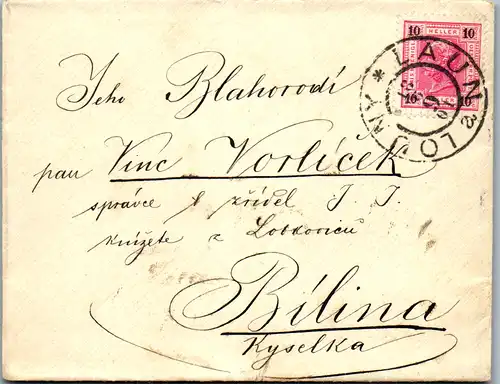 10 HELLER 10
LAUN & LOUNY *
Jeho Blahorodí
pan Vinc Vorlíček
správce zřídel J. J.
knížete z Lobkoviců
Bílina
Kyselka